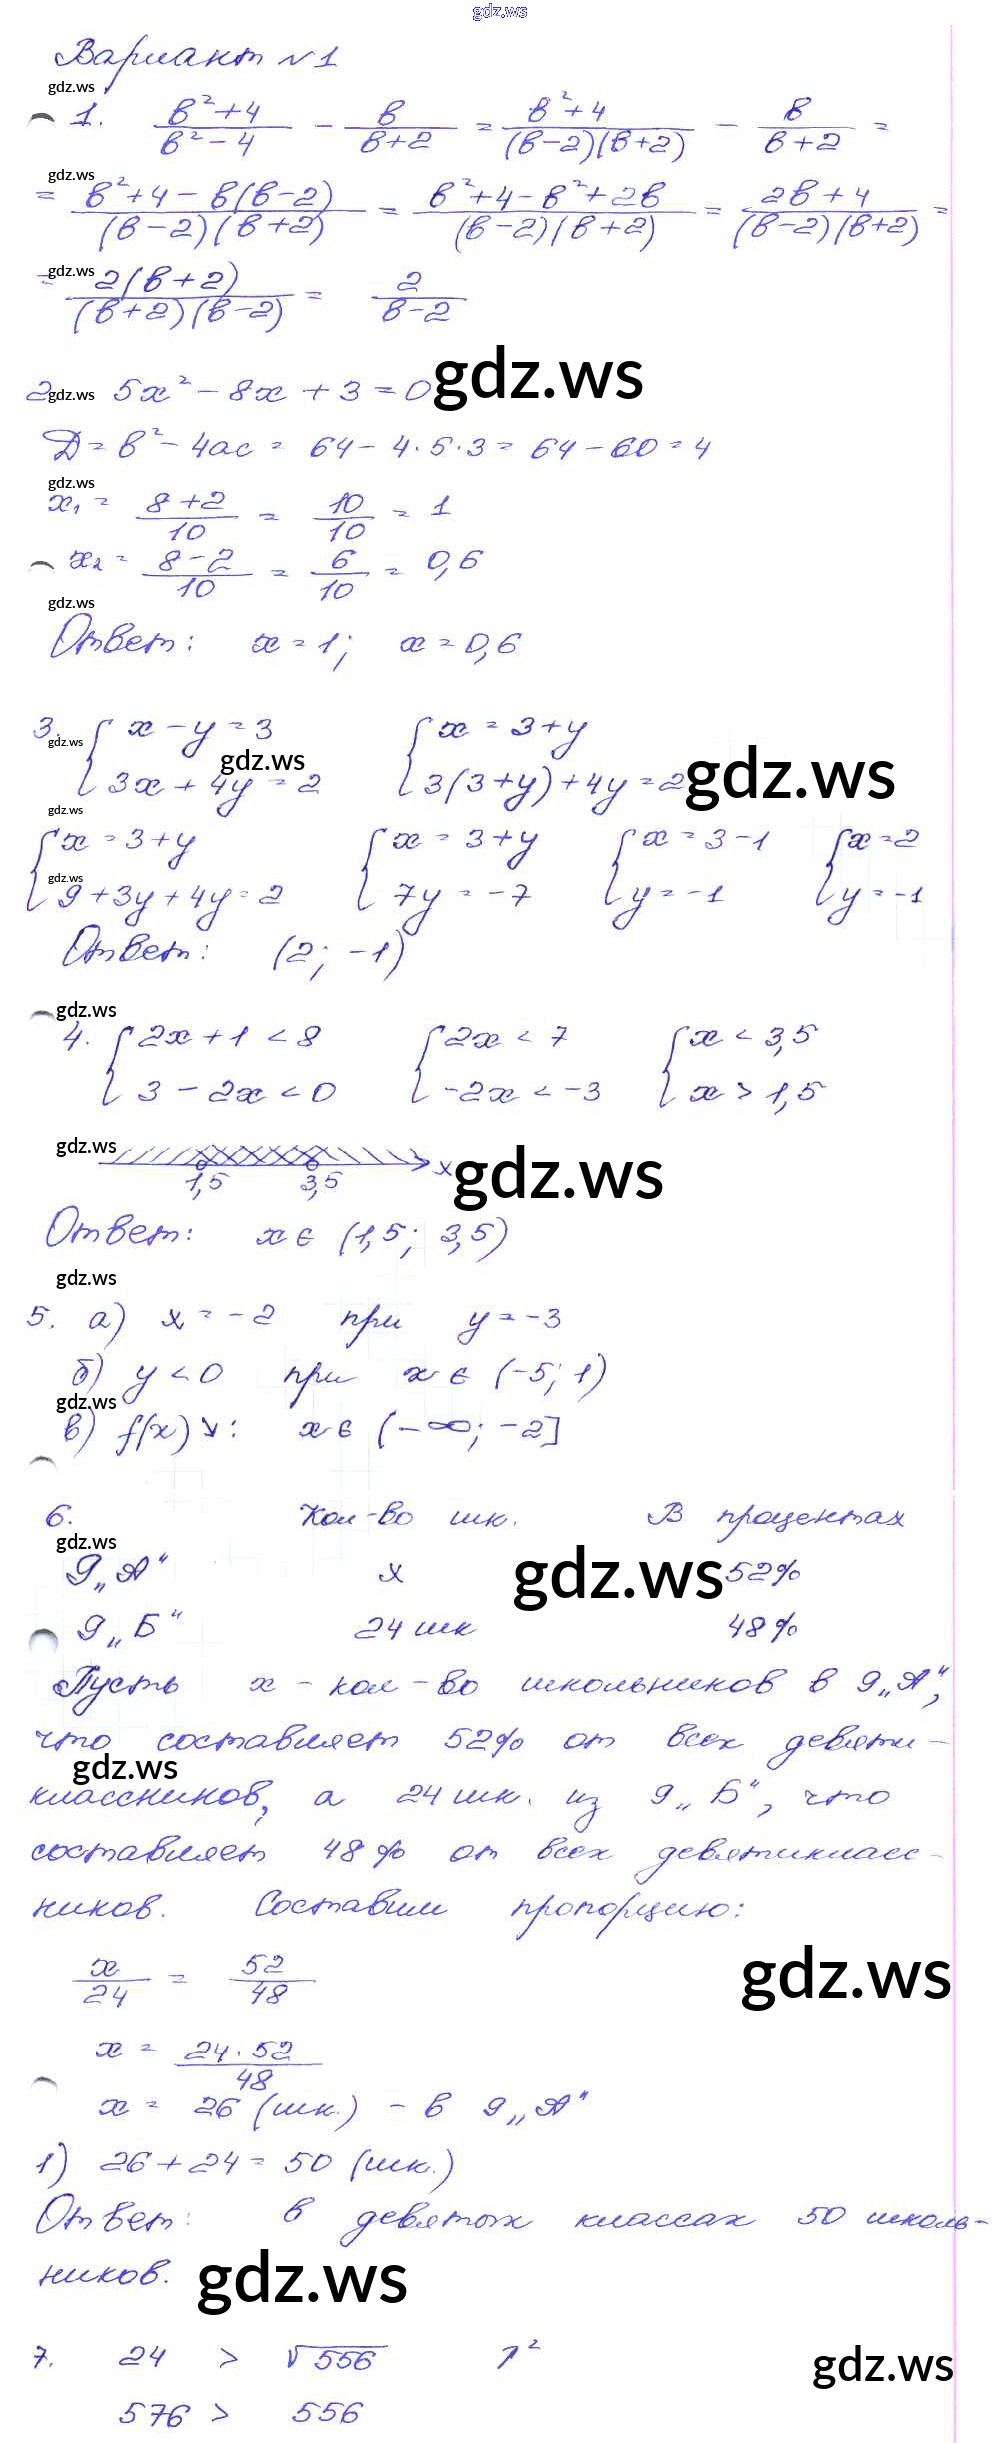 gdz.ws
Вариант №1
gdz.ws
1. (в²+4)/(в²-4) - в/(в+2) = (в²+4)/((в-2)(в+2)) - в/(в+2) =
gdz.ws
= (в²+4-в(в-2))/((в-2)(в+2)) = (в²+4-в²+2в)/((в-2)(в+2)) = (2в+4)/((в-2)(в+2)) =
gdz.ws
= 2(в+2)/((в+2)(в-2)) = 2/(в-2)
2. gdz.ws 5x² - 8x + 3 = 0 gdz.ws
Д = в² - 4ac = 64 - 4·5·3 = 64 - 60 = 4
gdz.ws
x₁ = (8+2)/10 = 10/10 = 1
x₂ = (8-2)/10 = 6/10 = 0,6
gdz.ws
Ответ: x = 1; x = 0,6
3. { x - y = 3 { x = 3 + y
gdz.ws gdz.ws gdz.ws
{ 3x + 4y = 2 { 3(3+y) + 4y = 2
gdz.ws
{ x = 3 + y { x = 3 + y { x = 3 - 1 { x = 2
gdz.ws
{ 9 + 3y + 4y = 2 { 7y = -7 { y = -1 { y = -1
Ответ: (2; -1)
gdz.ws
4. { 2x + 1 < 8 { 2x < 7 { x < 3,5
{ 3 - 2x < 0 { -2x < -3 { x > 1,5
gdz.ws x gdz.ws
1,5 3,5
Ответ: x ∈ (1,5; 3,5)
gdz.ws
5. а) x = -2 при y = -3
б) y < 0 при x ∈ (-5; 1)
gdz.ws
в) f(x) ↘: x ∈ (-∞; -2]
6. Кол-во шк. В процентах
gdz.ws gdz.ws
9„А" x 52%
9„Б" 24 шк 48%
Пусть x - кол-во школьников в 9„А",
что составляет 52% от всех девяти-
gdz.ws
классников, а 24 шк. из 9„Б", что
составляет 48% от всех девятикласс-
ников. Составим пропорцию:
x/24 = 52/48 gdz.ws
x = (24·52)/48
x = 26 (шк.) - в 9„А"
1) 26 + 24 = 50 (шк.)
Ответ: в девятых классах 50 школь-
ников. gdz.ws
7. 24 > √556 ↑² gdz.ws
576 > 556